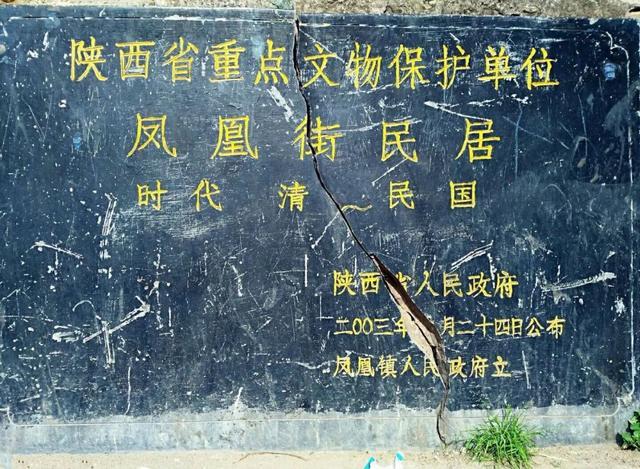 陕西省重点文物保护单位
凤凰街民居
时代 清~民国
陕西省人民政府
二00三年 月二十四日公布
凤凰镇人民政府立